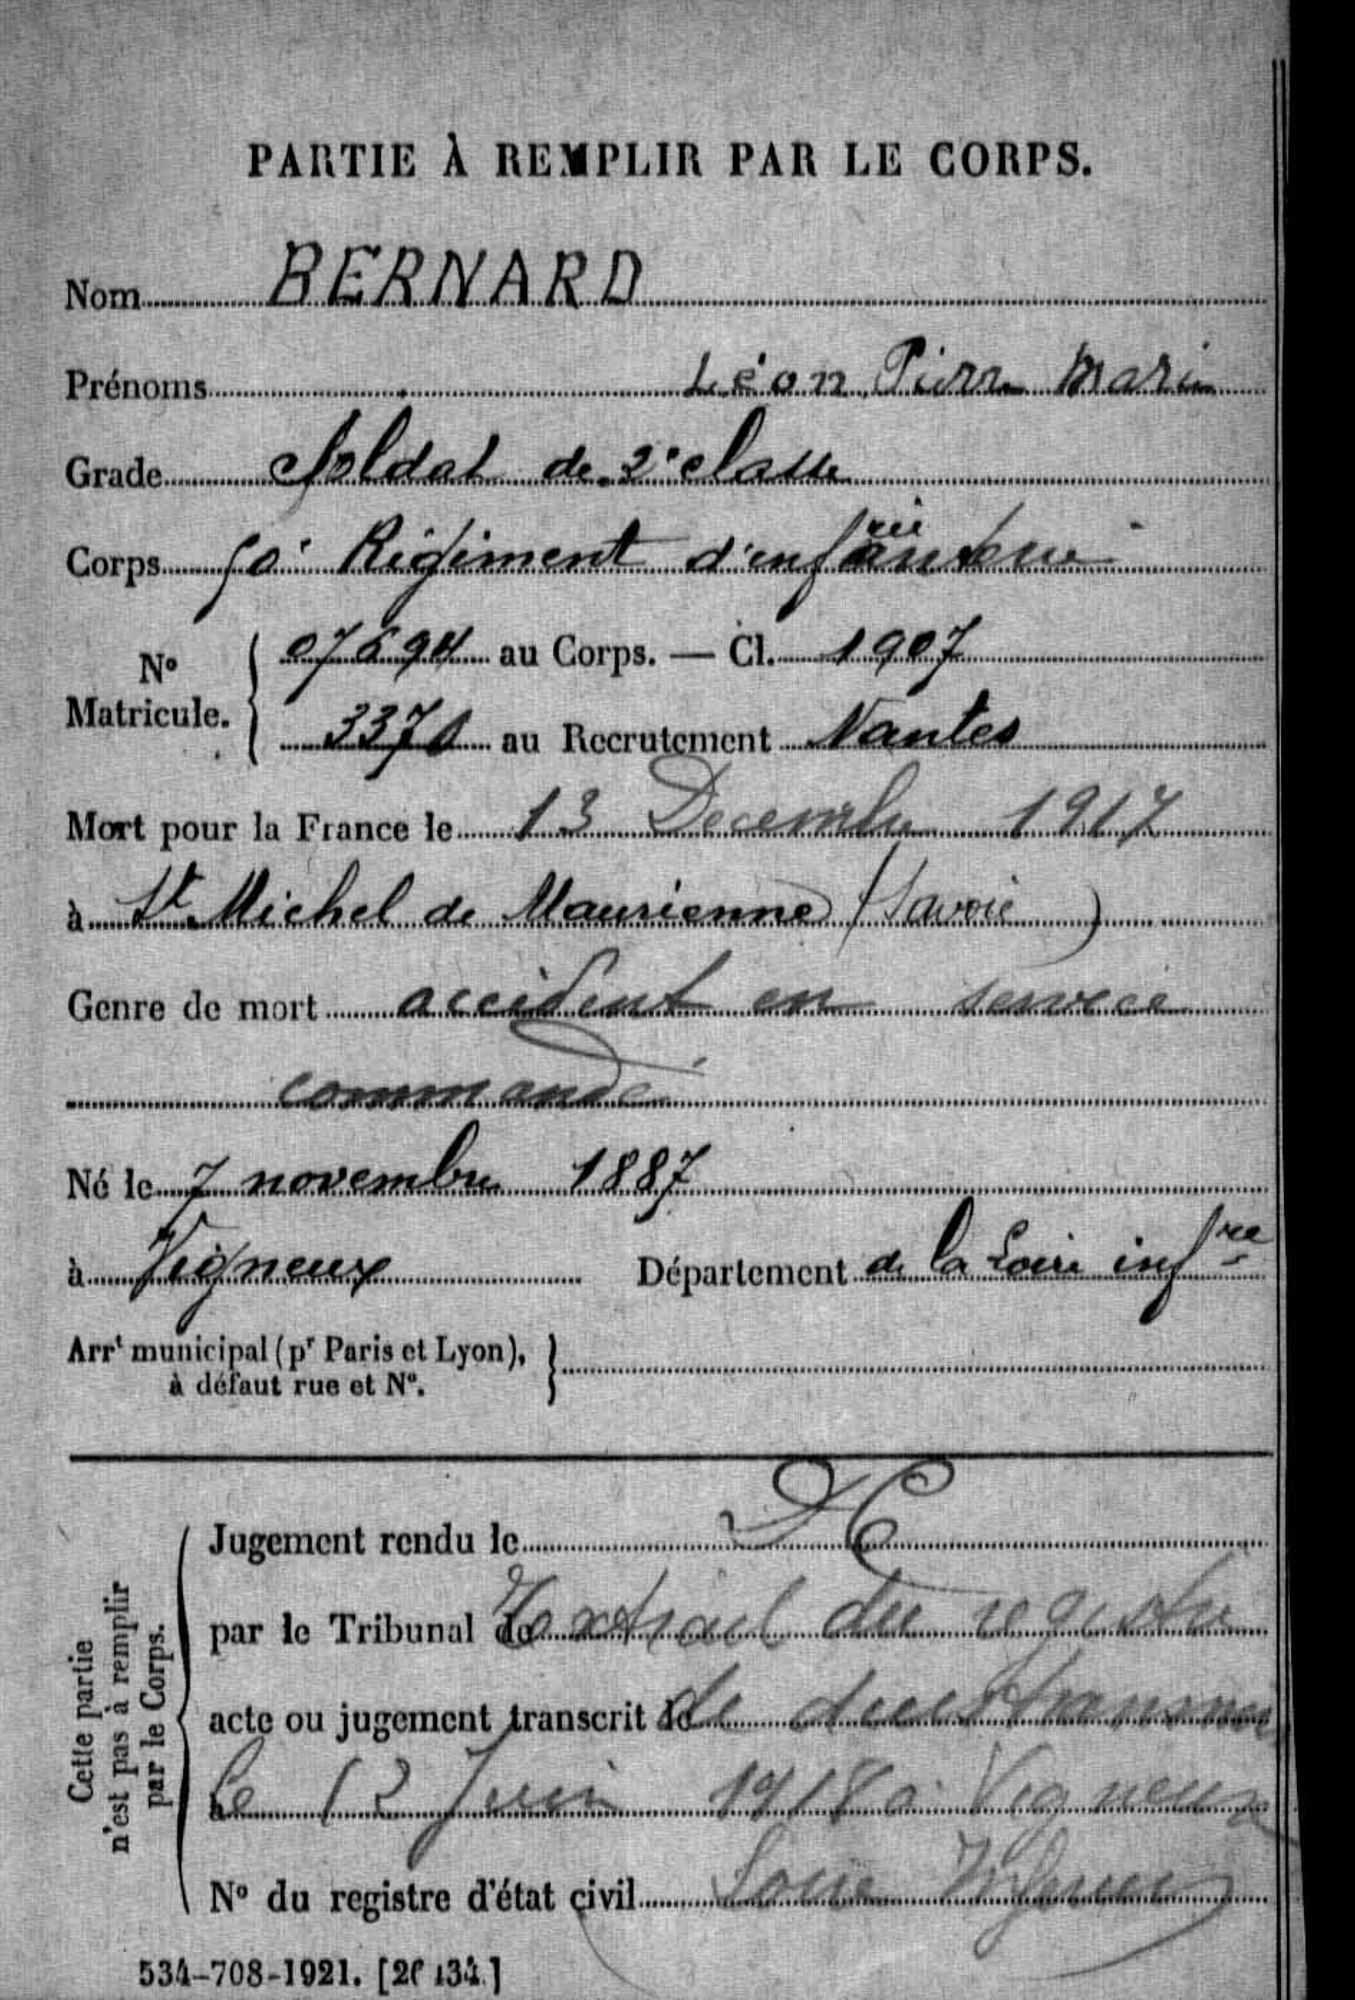 PARTIE À REMPLIR PAR LE CORPS.
Nom BERNARD
Prénoms Léon Pierre Marie
Grade Soldat de 2e classe
Corps 50e Régiment d'infanterie
No Matricule. 07694 au Corps. — Cl. 1907
3370 au Recrutement Nantes
Mort pour la France le 13 Decembre 1917
à St Michel de Maurienne (Savoie)
Genre de mort accident en service
commandé
Né le 7 novembre 1887
à Vigneux Département de la Loire infre
Arrt municipal (pr Paris et Lyon),
à défaut rue et No.
Cette partie
n'est pas à remplir
par le Corps.
Jugement rendu le
par le Tribunal de extrait du registre
acte ou jugement transcrit le de deces transmis
à le 12 Juin 1918 a Vigneux
No du registre d'état civil Loire Inferieure
534-708-1921. [26134.]